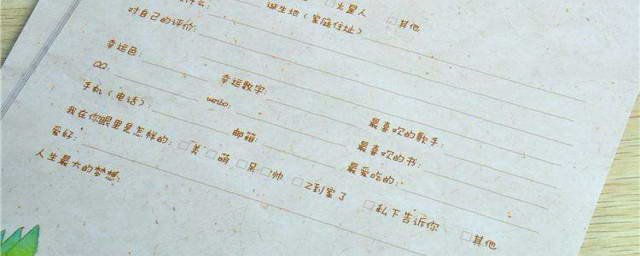 火星人 □其他
什么: 诞生地(家庭住址)
对自己的评价:
幸运色: 幸运数字: 最喜欢的歌手:
QQ: weibo: 最喜欢的书:
手机(电话): 邮箱: 最爱吃的:
我在你眼里是怎样的: □美 □萌 □呆 □帅 □2到家了 □私下告诉你 □其他
爱好:
人生最大的梦想: